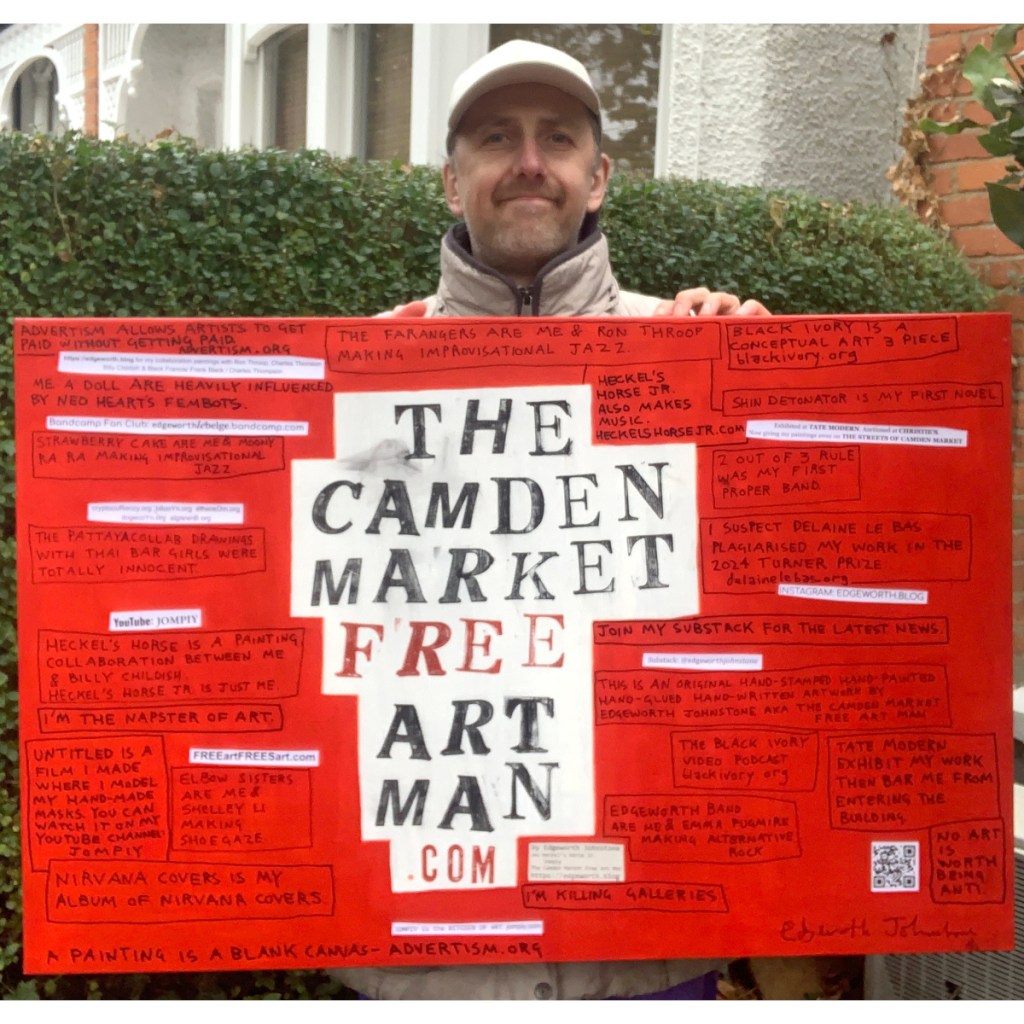 ADVERTISM ALLOWS ARTISTS TO GET
PAID WITHOUT GETTING PAID
ADVERTISM.ORG
https://edgeworth.blog for my collaboration paintings with Ron Throop, Charles Thomson
Billy Childish & Black Francis/ Frank Black / Charles Thompson
ME A DOLL ARE HEAVILY INFLUENCED
BY NEO HEART'S FEMBOTS.
Bandcamp Fan Club: edgeworth/rbelge.bandcamp.com
STRAWBERRY CAKE ARE ME & MOONY
RA RA MAKING IMPROVISATIONAL
JAZZ
THE PATTAYACOLLAB DRAWINGS
WITH THAI BAR GIRLS WERE
TOTALLY INNOCENT.
YouTube: JOMPIY
HECKEL'S HORSE IS A PAINTING
COLLABORATION BETWEEN ME
& BILLY CHILDISH.
HECKEL'S HORSE JR. IS JUST ME.
I'M THE NAPSTER OF ART.
UNTITLED IS A
FILM I MADE
WHERE I MODEL
MY HAND-MADE
MASKS. YOU CAN
WATCH IT ON MY
YOUTUBE CHANNEL
JOMPIY
FREEartFREESart.com
ELBOW SISTERS
ARE ME &
SHELLEY LI
MAKING
SHOEGAZE
NIRVANA COVERS IS MY
ALBUM OF NIRVANA COVERS
A PAINTING IS A BLANK CANVAS- ADVERTISM.ORG
THE FARANGERS ARE ME & RON THROOP
MAKING IMPROVISATIONAL JAZZ.
THE
CAMDEN
MARKET
FREE
ART
MAN
.COM
By Edgeworth Johnstone
aka Heckel's Horse Jr.
Jompiy
The Camden Market Free Art Man
https://edgeworth.blog
JOMPIY is the BITCOIN OF ART
HECKEL'S
HORSE JR.
ALSO MAKES
MUSIC.
HECKELSHORSEJR.COM
BLACK IVORY IS A
CONCEPTUAL ART 3 PIECE
blackivory.org
SHIN DETONATOR IS MY FIRST NOVEL
Exhibited at TATE MODERN. Auctioned at CHRISTIE'S.
Now giving my paintings away on THE STREETS OF CAMDEN MARKET
2 OUT OF 3 RULE
WAS MY FIRST
PROPER BAND.
I SUSPECT DELAINE LE BAS
PLAGIARISED MY WORK IN THE
2024 TURNER PRIZE
delainelebas.org
INSTAGRAM: EDGEWORTH.BLOG
JOIN MY SUBSTACK FOR THE LATEST NEWS.
Substack: @edgeworthjohnstone
THIS IS AN ORIGINAL HAND-STAMPED HAND-PAINTED
HAND-GLUED HAND-WRITTEN ARTWORK BY
EDGEWORTH JOHNSTONE AKA THE CAMDEN MARKET
FREE ART MAN
THE BLACK IVORY
VIDEO PODCAST
blackivory.org
TATE MODERN
EXHIBIT MY WORK
THEN BAR ME FROM
ENTERING THE
BUILDING.
EDGEWORTH BAND
ARE ME & EMMA PUGMIRE
MAKING ALTERNATIVE
ROCK
I'M KILLING GALLERIES
NO ART
IS
WORTH
BEING
ANTI.
Edgeworth Johnstone